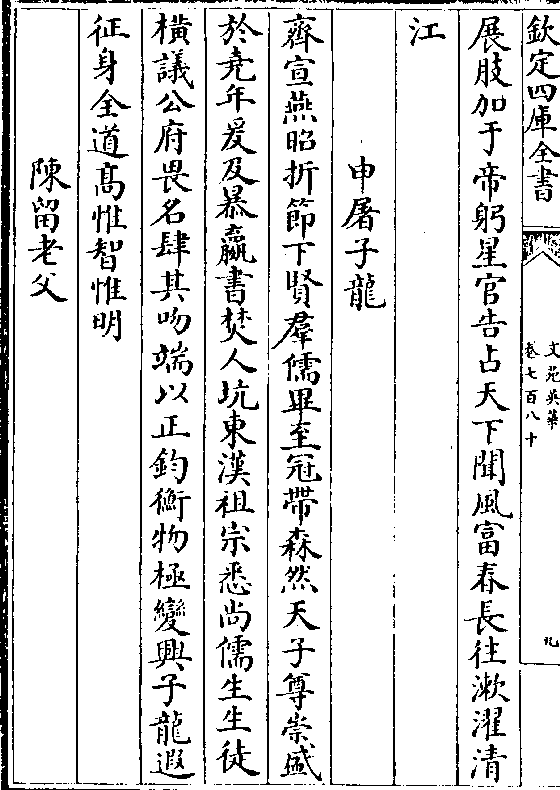 欽定四庫全書
文苑英華
卷七百八十
九
展肢加于帝躬星官告占天下聞風富春長往漱濯清
江
申屠子龍
齊宣燕昭折節下賢羣儒畢至冠帶森然天子尊崇盛
於堯年爰及暴嬴書焚人坑東漢祖宗悉尚儒生生徒
橫議公府畏名肆其吻端以正鈞衡物極變興子龍遐
征身全道高惟智惟明
陳留老父